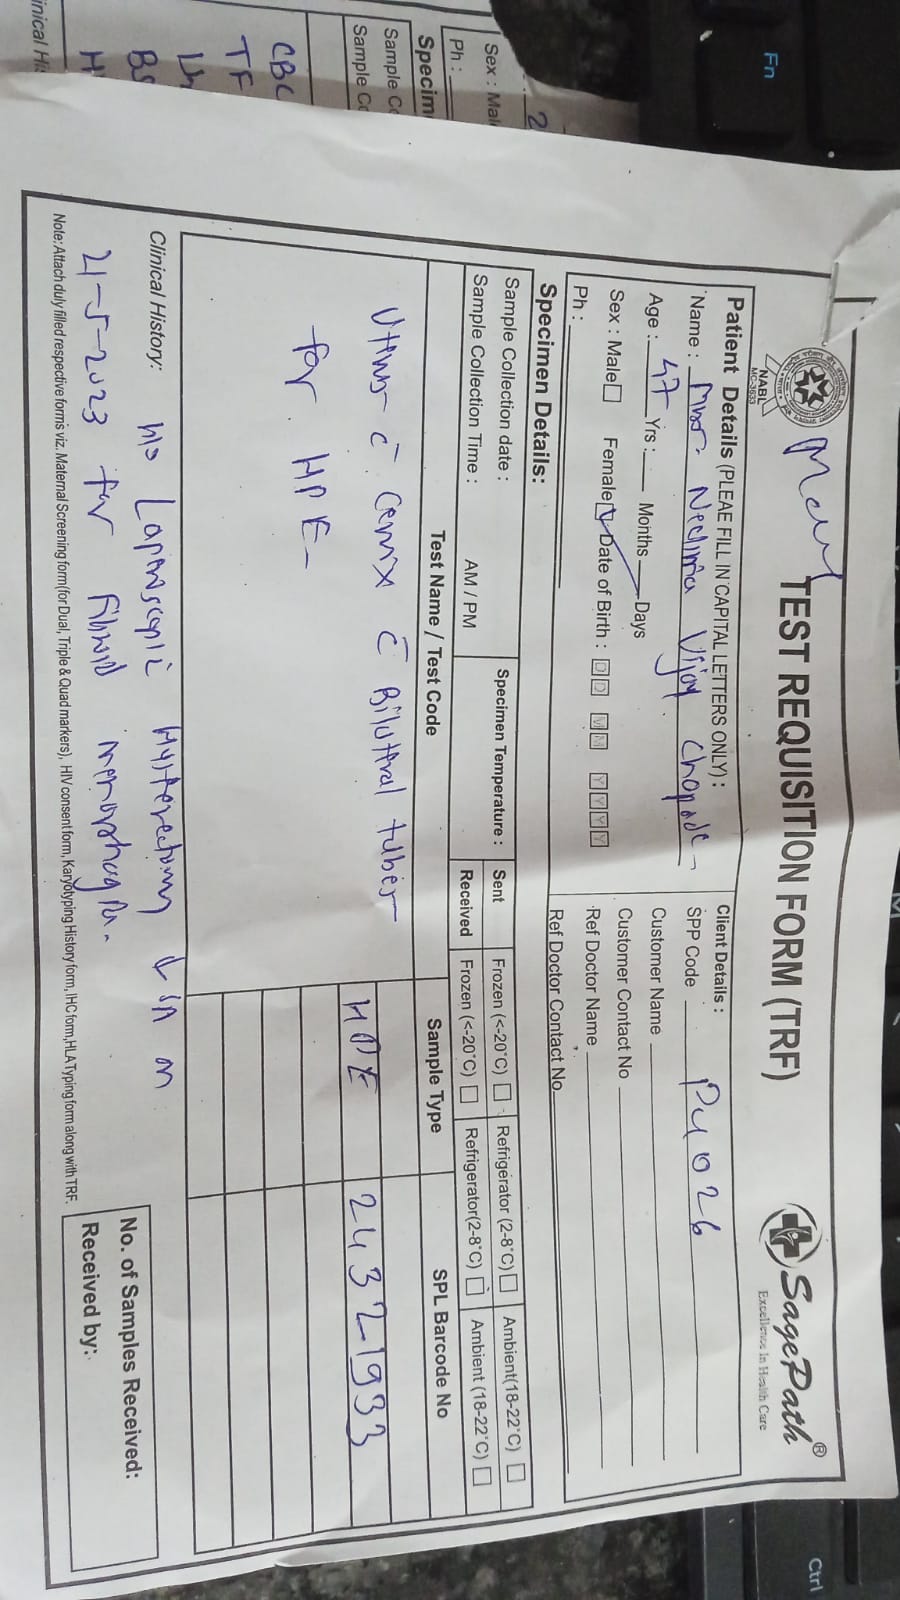 TEST REQUISITION FORM (TRF)
NABL
MC-3633
SagePath®
Excellence In Health Care
Patient Details (PLEAE FILL IN CAPITAL LETTERS ONLY) :
Name : Neelima Vijay Chopade
Age : 47 Yrs : Months Days
Sex : Male Female Date of Birth : D D M M Y Y Y Y
Ph :
Client Details :
SPP Code PU026
Customer Name
Customer Contact No
Ref Doctor Name
Ref Doctor Contact No
Specimen Details:
Sample Collection date :
Sample Collection Time : AM / PM
Specimen Temperature :
Sent Frozen (<-20°C) Refrigerator (2-8°C) Ambient(18-22°C)
Received Frozen (<-20°C) Refrigerator(2-8°C) Ambient (18-22°C)
Test Name / Test Code Sample Type SPL Barcode No
Uterus c̄ Cervix c̄ Bilateral tubes
for HPE
HPE 24321933
Clinical History: H/o Laparoscopic Hysterectomy on
21-5-2023 for fibroid menorrhagia.
Note: Attach duly filled respective forms viz. Maternal Screening form(for Dual, Triple & Quad markers), HIV consent form, Karyotyping History form, IHC form,HLA Typing form along with TRF.
No. of Samples Received:
Received by:
2
Sex : Mal
Ph :
Specim
Sample Co
Sample Co
CBC
TF
BS
H
inical His
Fn
Ctrl
M